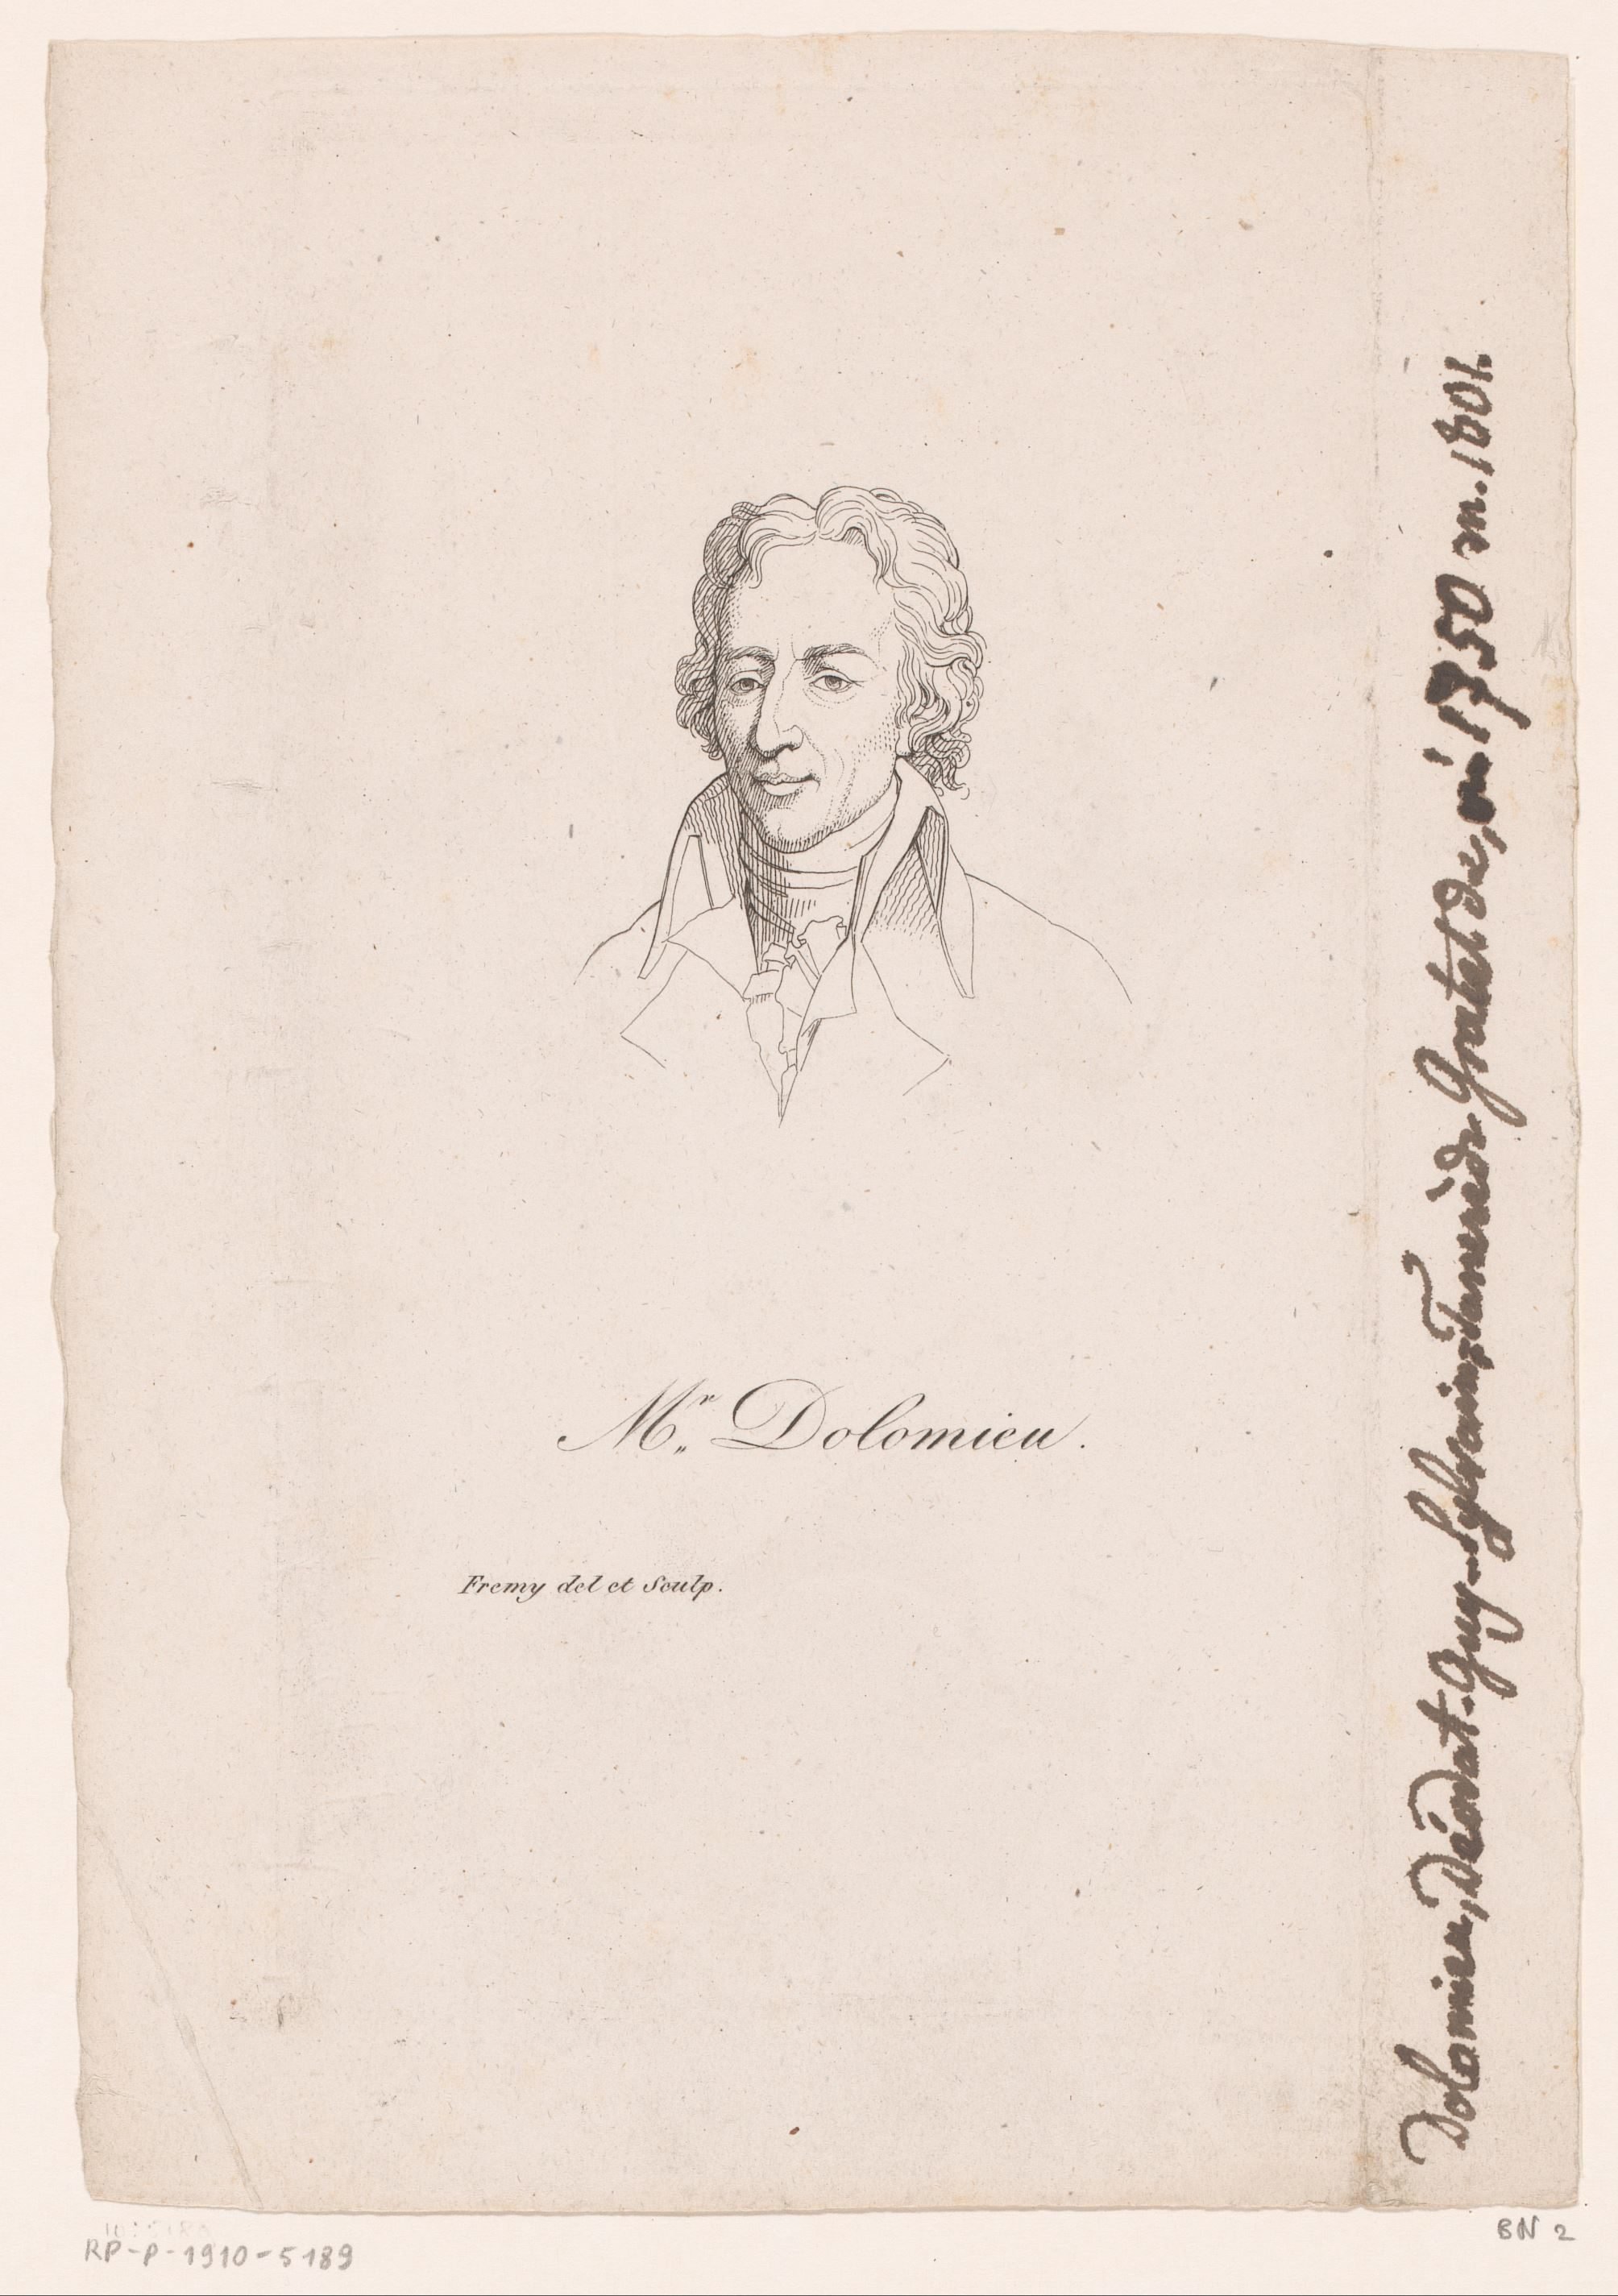 Mr. Dolomieu.
Fremy del et Sculp.
Dolomieu, Déodat-Guy-Sylvain-Tancrède Gratet de, né 1750 m. 1801.
RP-P-1910-5189
BN 2